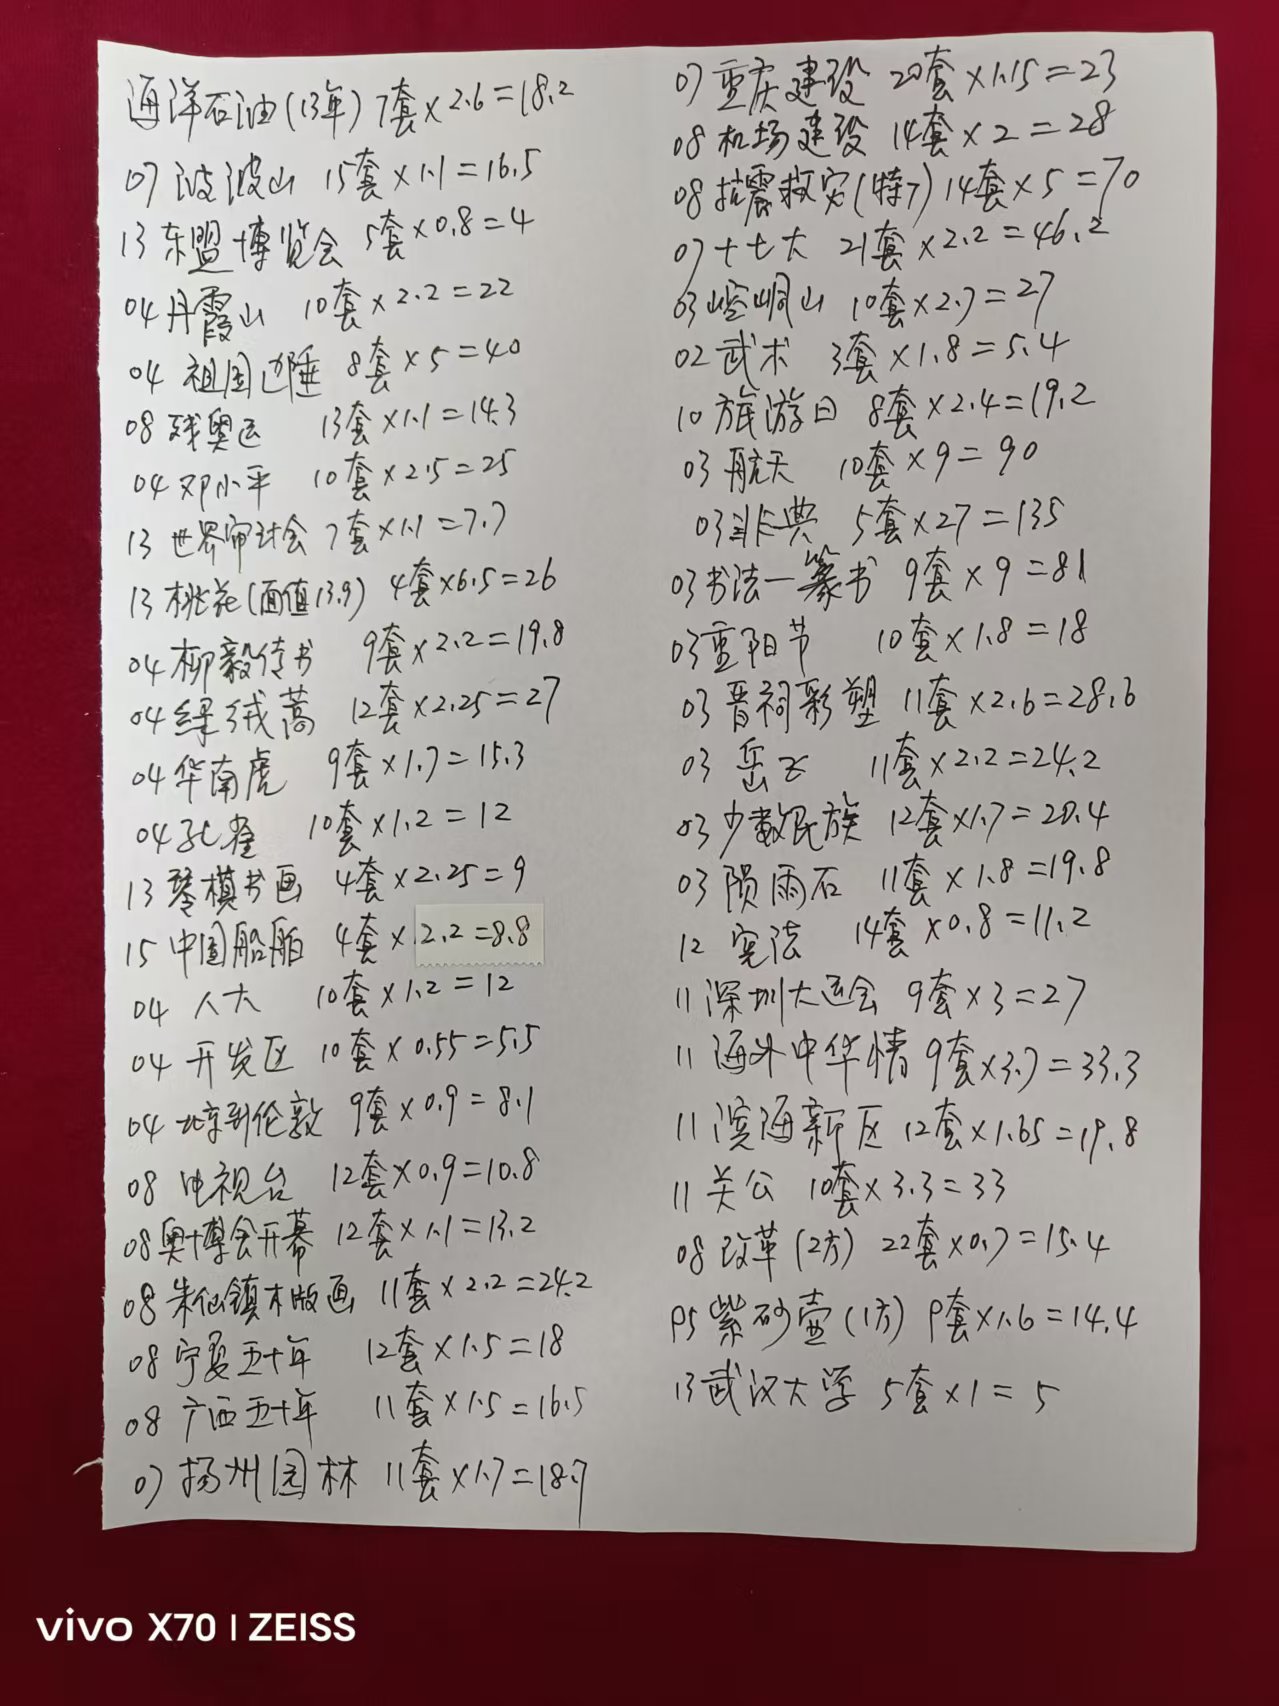 海洋石油(13年) 7套×2.6=18.2
07 波波山 15套×1.1=16.5
13 东盟博览会 5套×0.8=4
04 丹霞山 10套×2.2=22
04 祖国边陲 8套×5=40
08 残奥运 13套×1.1=14.3
04 邓小平 10套×2.5=25
13 世界审计会 7套×1.1=7.7
13 桃花(面值13.9) 4套×6.5=26
04 柳毅传书 9套×2.2=19.8
04 绿绒蒿 12套×2.25=27
04 华南虎 9套×1.7=15.3
04 孔雀 10套×1.2=12
13 琴棋书画 4套×2.25=9
15 中国船舶 4套×2.2=8.8
04 人大 10套×1.2=12
04 开发区 10套×0.55=5.5
04 北京到伦敦 9套×0.9=8.1
08 电视台 12套×0.9=10.8
08 奥博会开幕 12套×1.1=13.2
08 朱仙镇木版画 11套×2.2=24.2
08 宁夏五十年 12套×1.5=18
08 广西五十年 11套×1.5=16.5
07 扬州园林 11套×1.7=18.7
07 重庆建设 20套×1.15=23
08 机场建设 14套×2=28
08 抗震救灾(特7) 14套×5=70
07 十七大 21套×2.2=46.2
03 崆峒山 10套×2.7=27
02 武术 3套×1.8=5.4
10 旅游日 8套×2.4=19.2
03 航天 10套×9=90
03 非典 5套×27=135
03 书法一篆书 9套×9=81
03 重阳节 10套×1.8=18
03 晋祠彩塑 11套×2.6=28.6
03 岳飞 11套×2.2=24.2
03 少数民族 12套×1.7=20.4
03 陨雨石 11套×1.8=19.8
12 宪法 14套×0.8=11.2
11 深圳大运会 9套×3=27
11 海外中华情 9套×3.7=33.3
11 滨海新区 12套×1.65=19.8
11 关公 10套×3.3=33
08 改革(2方) 22套×0.7=15.4
P5 紫砂壶(1方) 9套×1.6=14.4
13 武汉大学 5套×1=5
vivo X70 | ZEISS